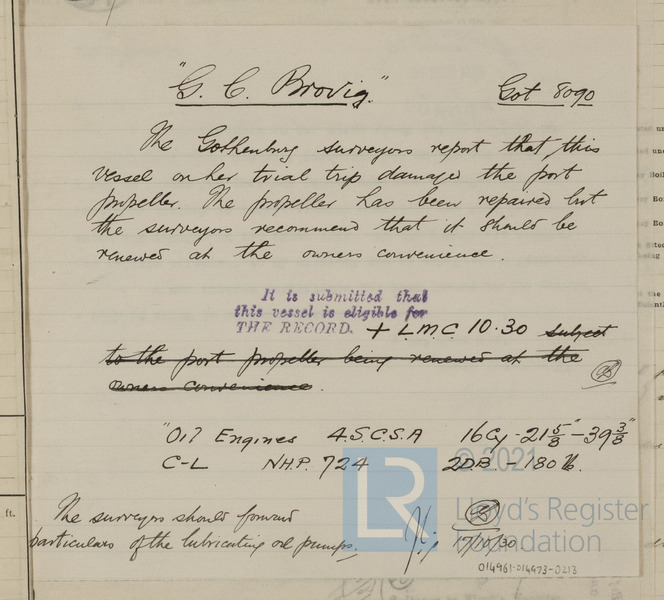 "G. C. Brovig." Got 8090
The Gothenburg surveyors report that this
vessel on her trial trip damaged the port
propeller. The propeller has been repaired but
the surveyors recommend that it should be
renewed at the owners convenience.
It is submitted that
this vessel is eligible for
THE RECORD. + L.M.C. 10.30 subject
to the port propeller being renewed at the
owners convenience.
"Oil Engines 4.S.C.S.A 16Cy - 21 5/8" - 39 3/8"
C-L NHP. 724 2DB - 180 lb.
© 2021
LR
Lloyd's Register
Foundation
The surveyors should forward
particulars of the lubricating oil pumps.
17/10/30
014961-014973-0213
ft.